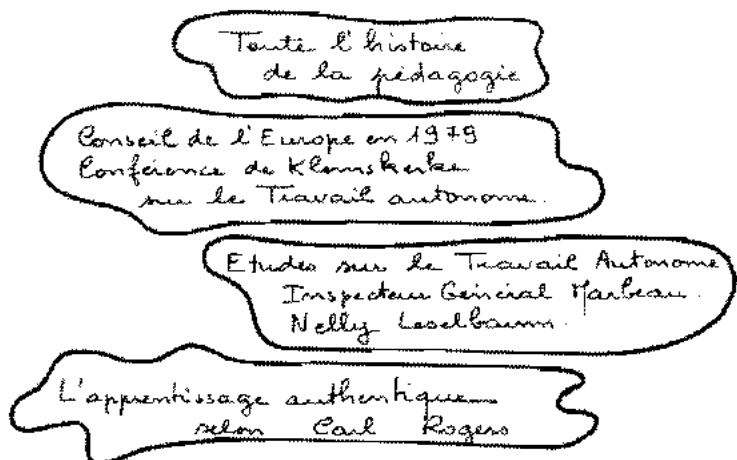 Toute l'histoire
de la pédagogie
Conseil de l'Europe en 1979
Conférence de Klemskerke
sur le Travail autonome.
Etudes sur le Travail Autonome
Inspecteur Général Marbeau.
Nelly Leselbaum.
L'apprentissage authentique
selon Carl Rogers